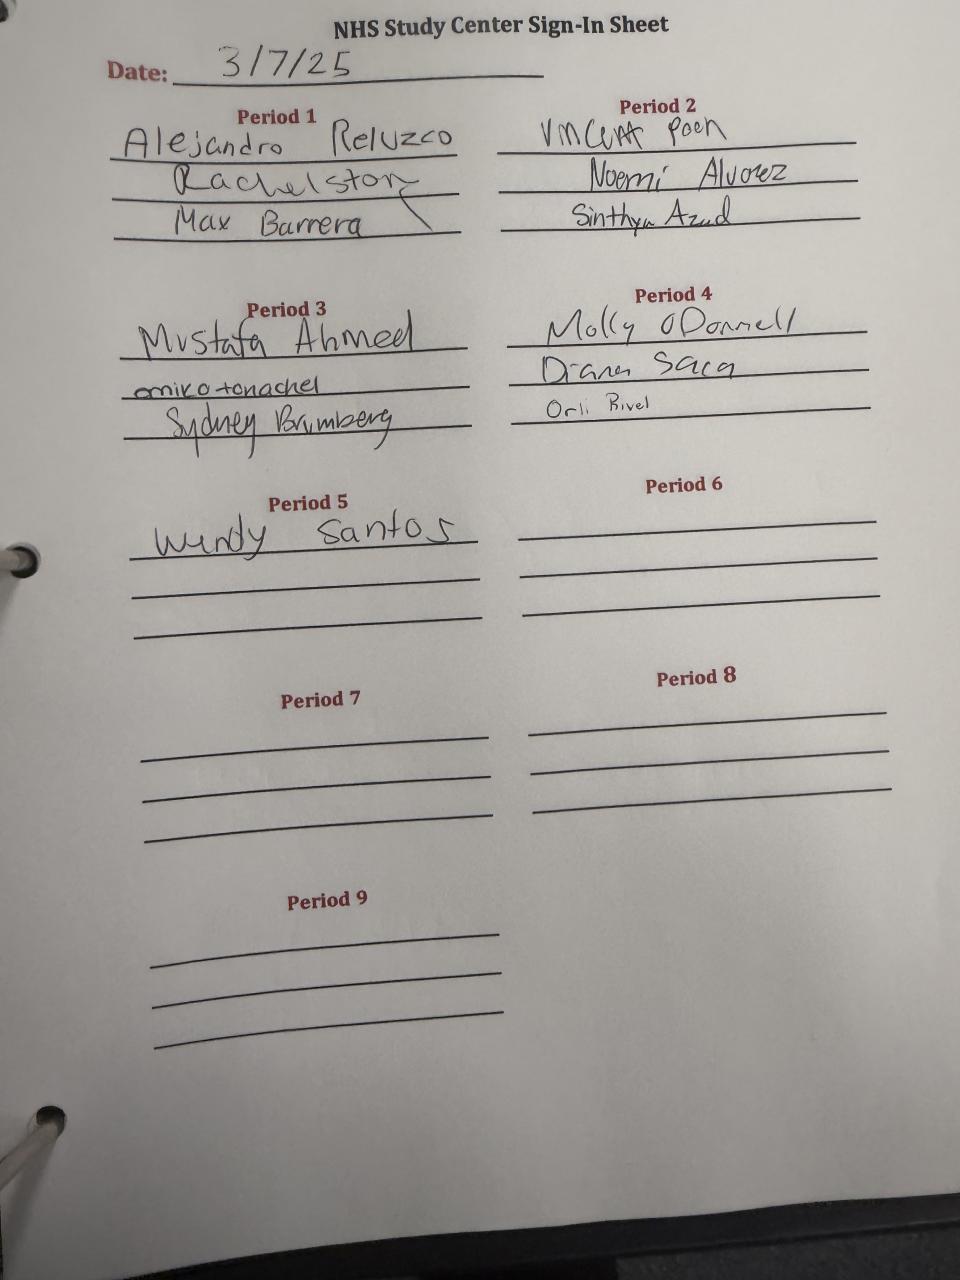 NHS Study Center Sign-In Sheet
Date: 3/7/25
Period 1
Alejandro Reluzco
Rachelston
Max Barrera
Period 2
Vincent Poen
Noemi Alvarez
Sinthya Azad
Period 3
Mustafa Ahmed
omiko tonachel
Sydney Brumberg
Period 4
Molly O'Donnell
Diana Saca
Orli Rivel
Period 5
Wendy Santos
Period 6
Period 7
Period 8
Period 9